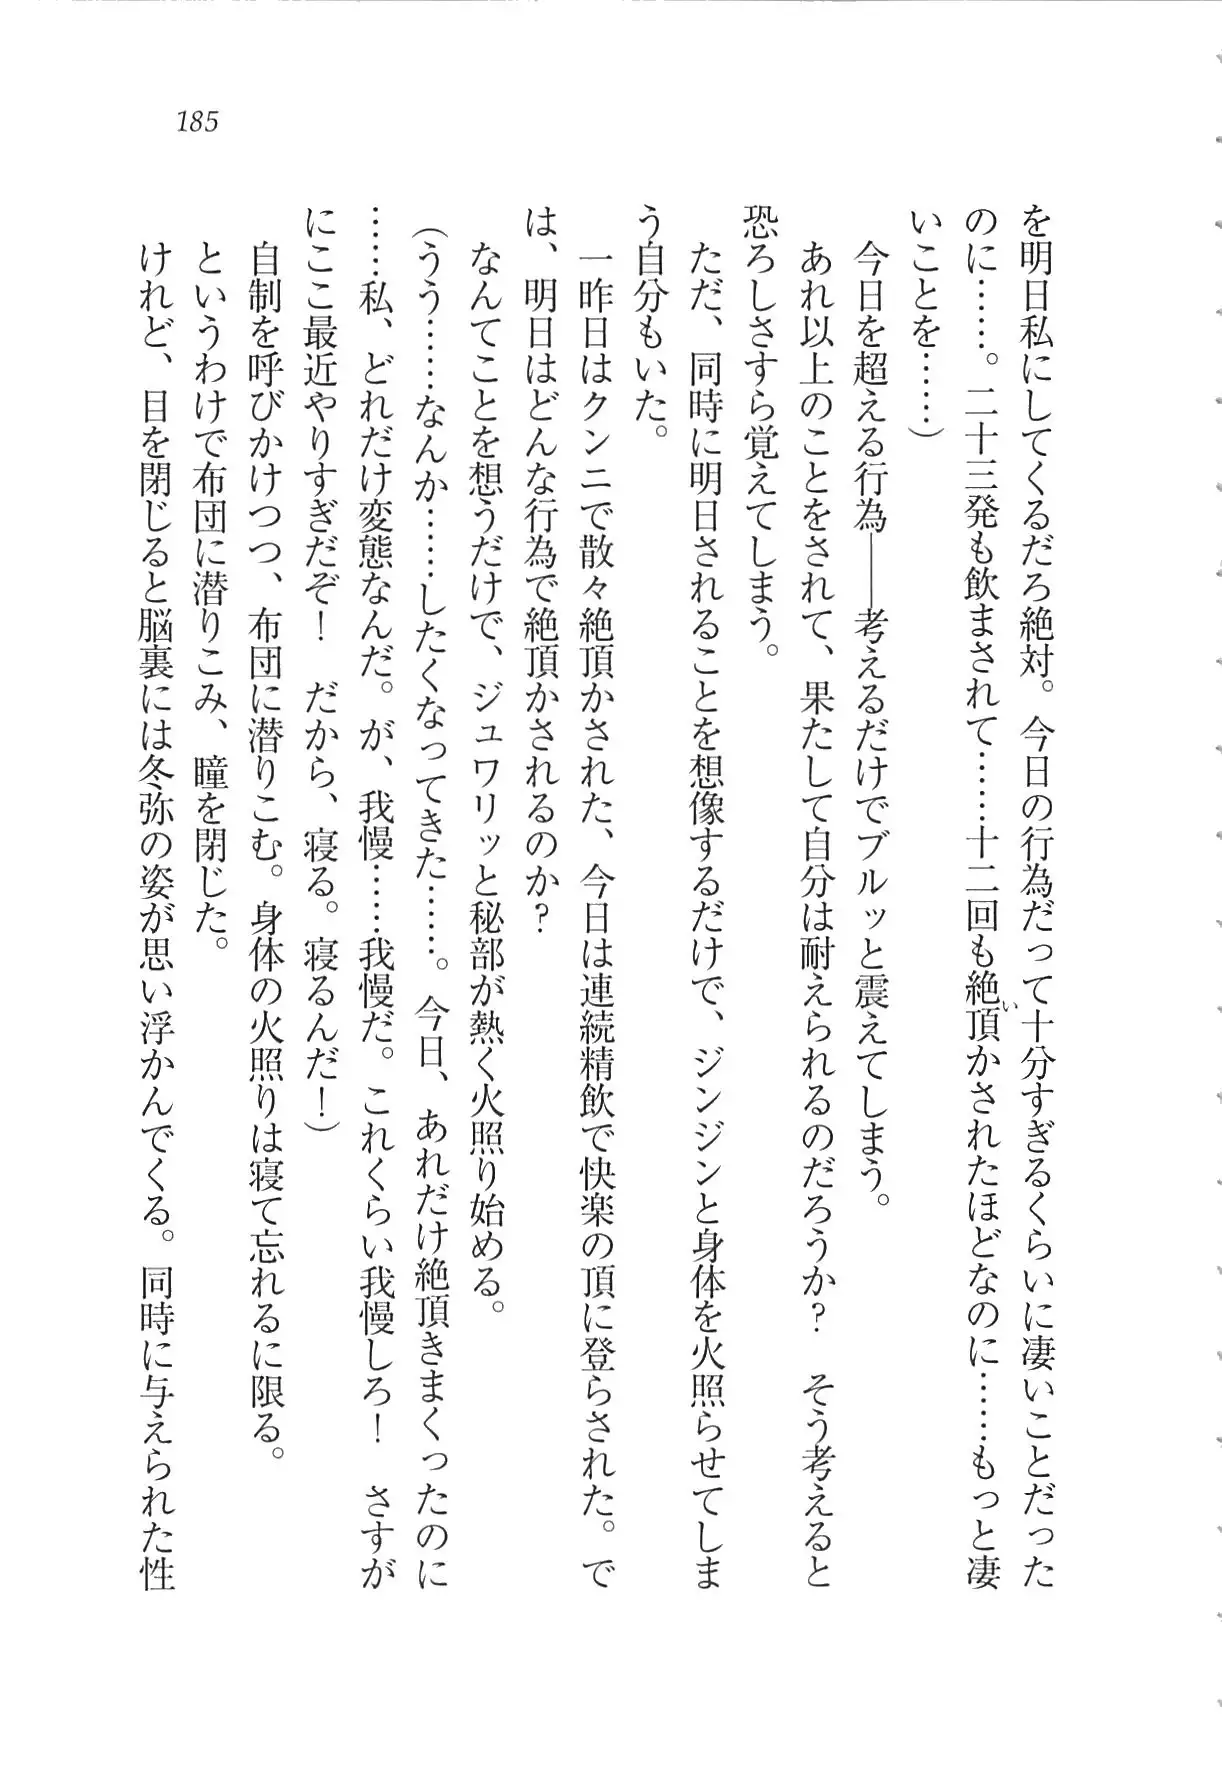 185
を明日私にしてくるだろ絶対。今日の行為だって十分すぎるくらいに凄いことだった
のに……。二十三発も飲まされて……十二回も絶頂かされたほどなのに……もっと凄
い
いことを……）
今日を超える行為――考えるだけでブルッと震えてしまう。
あれ以上のことをされて、果たして自分は耐えられるのだろうか？　そう考えると
恐ろしさすら覚えてしまう。
ただ、同時に明日されることを想像するだけで、ジンジンと身体を火照らせてしま
う自分もいた。
一昨日はクンニで散々絶頂かされた、今日は連続精飲で快楽の頂に登らされた。で
は、明日はどんな行為で絶頂かされるのか？
なんてことを想うだけで、ジュワリッと秘部が熱く火照り始める。
（うう……なんか……したくなってきた……。今日、あれだけ絶頂きまくったのに
……私、どれだけ変態なんだ。が、我慢……我慢だ。これくらい我慢しろ！　さすが
にここ最近やりすぎだぞ！　だから、寝る。寝るんだ！）
自制を呼びかけつつ、布団に潜りこむ。身体の火照りは寝て忘れるに限る。
というわけで布団に潜りこみ、瞳を閉じた。
けれど、目を閉じると脳裏には冬弥の姿が思い浮かんでくる。同時に与えられた性